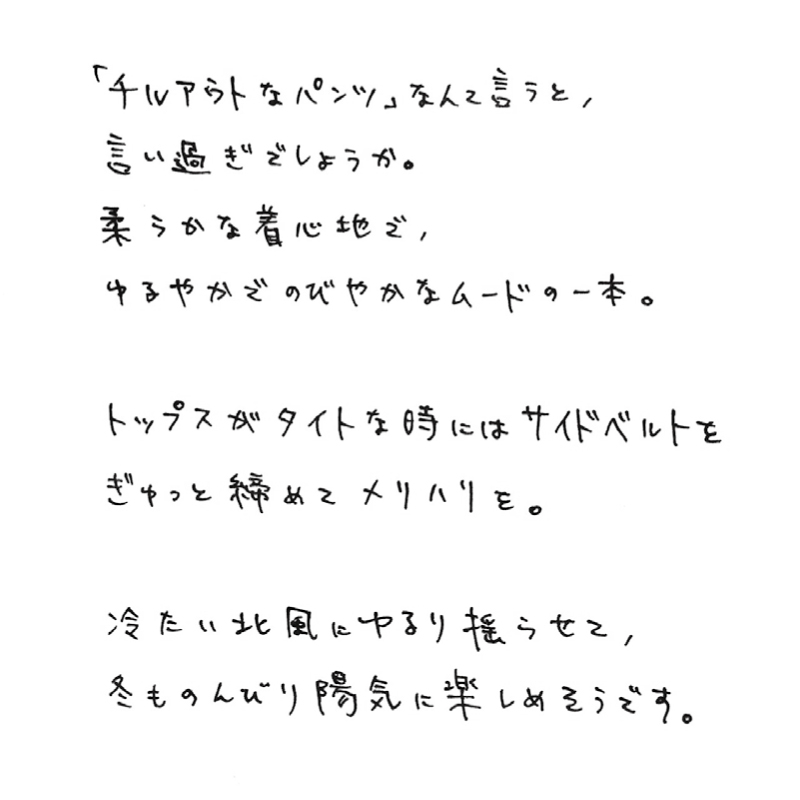 「チルアウトなパンツ」なんて言うと,
言い過ぎでしょうか。
柔らかな着心地で,
ゆるやかでのびやかなムードの一本。
トップスがタイトな時にはサイドベルトを
ぎゅっと締めてメリハリを。
冷たい北風にゆるり揺らせて,
冬ものんびり陽気に楽しめそうです。